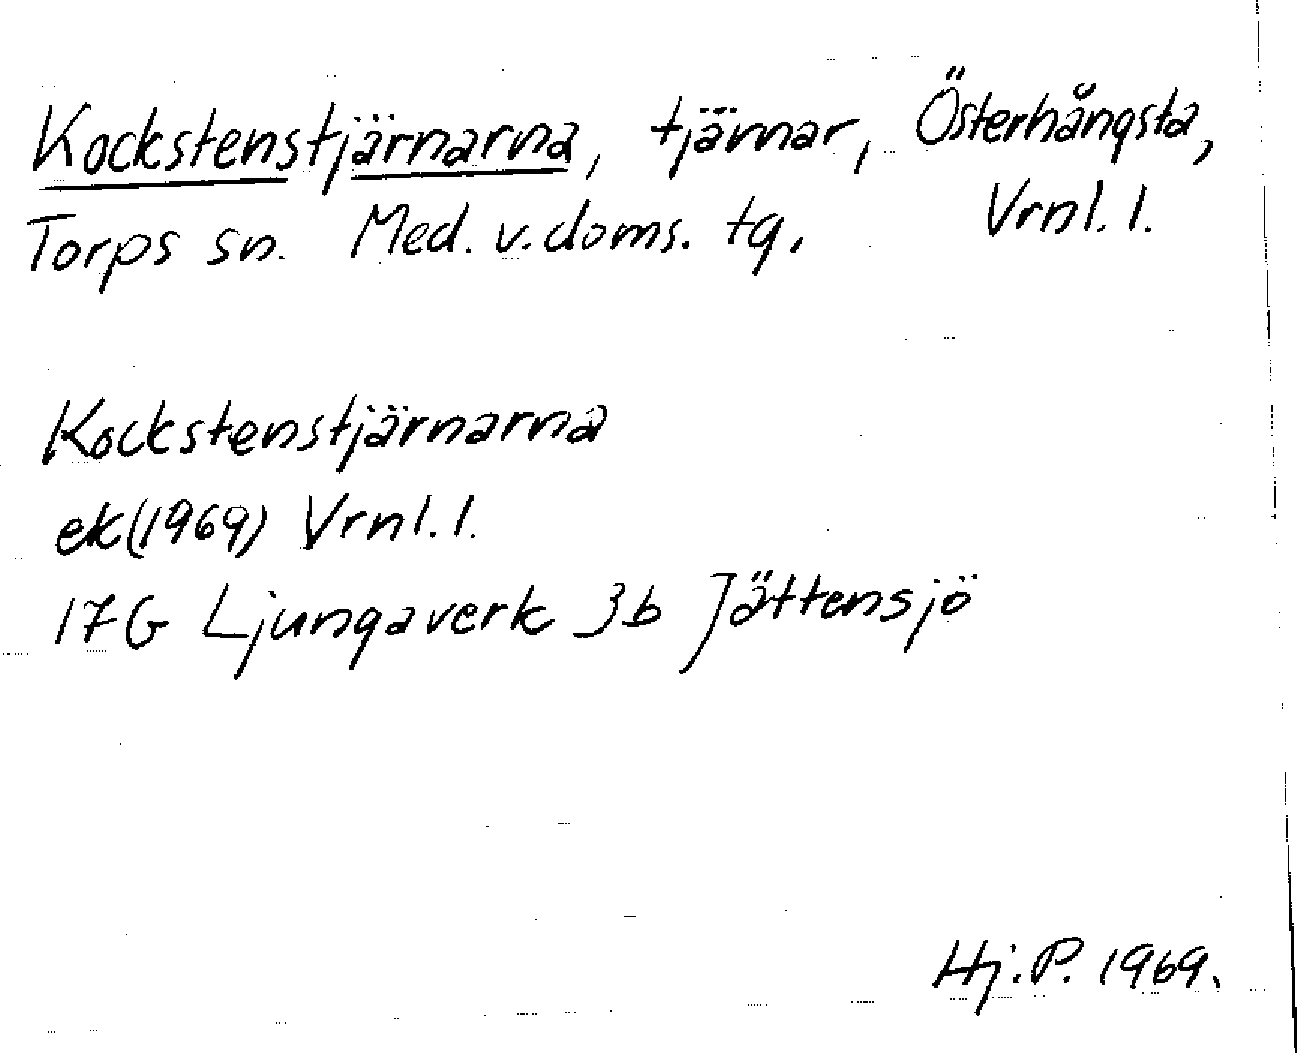 Kockstenstjärnarna, tjärnar, Österhångsta,
Torps sn. Med. v. doms. tg. Vrnl. l.
Kockstenstjärnarna
ek (1969) Vrnl. l.
17G Ljungaverk 3b Jättensjö
Hj. P. 1969.